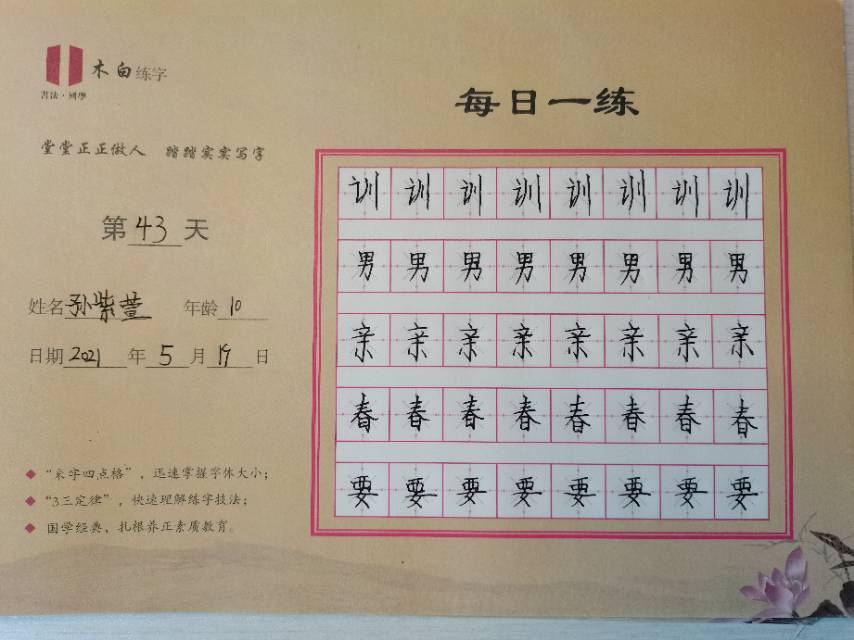 木白练字
書法·國學
每日一练
堂堂正正做人 踏踏实实写字
第43天
姓名孙紫萱 年龄10
日期2021年5月19日
训训训训训训训训
男男男男男男男男
亲亲亲亲亲亲亲亲
春春春春春春春春
要要要要要要要要
◆ “米字四点格”，迅速掌握字体大小；
◆ “3三定律”，快速理解练字技法；
◆ 国学经典，扎根养正素质教育。